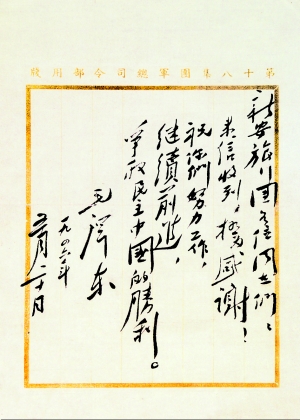 第十八集團軍總司令部用牋
新安旅行團各位同志們：
来信收到，極為感謝！
祝你們努力工作，
继續前進，
爭取民主中國的勝利。
毛澤東
一九四六年
五月二十日